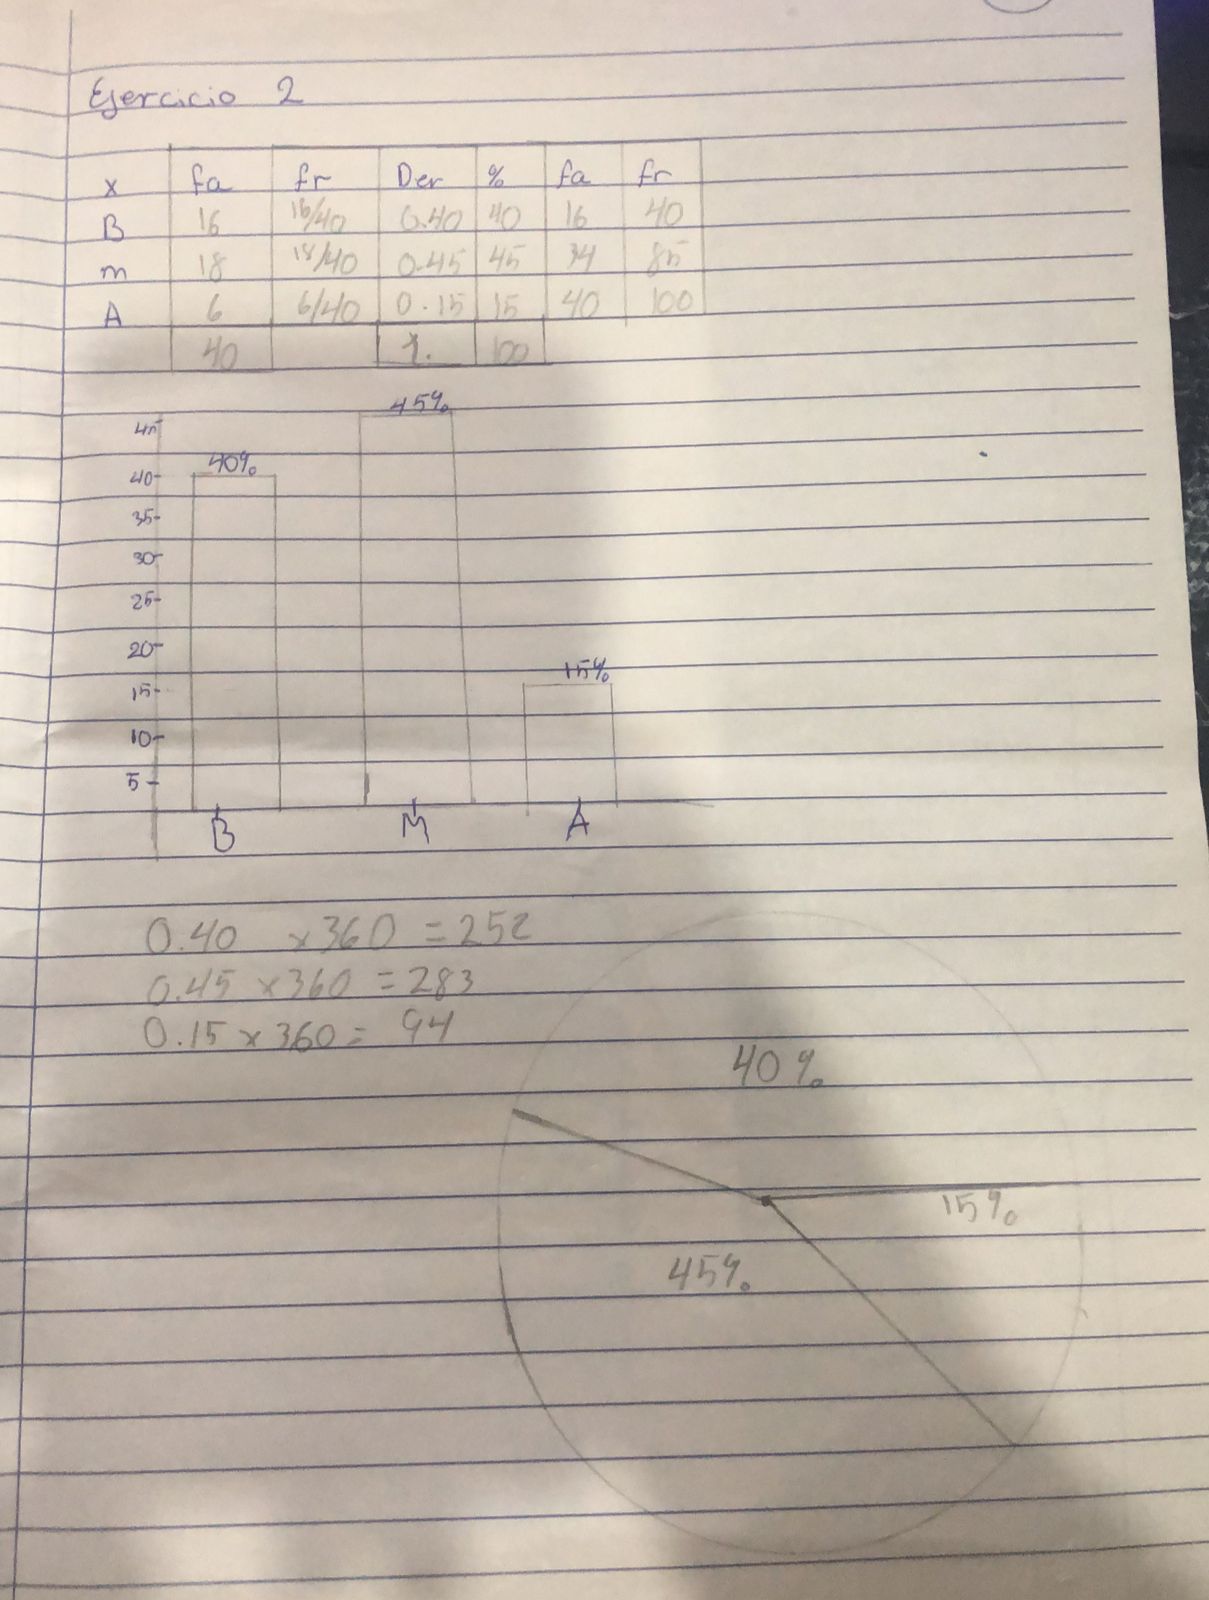 Ejercicio 2
x fa fr Der % fa fr
B 16 16/40 0.40 40 16 40
m 18 18/40 0.45 45 34 85
A 6 6/40 0.15 15 40 100
40 1. 100
45%
45
40%
40
35
30
25
20
15%
15
10
5
B M A
0.40 x360 = 252
0.45 x360 = 283
0.15 x 360 = 94
40%
15%
45%